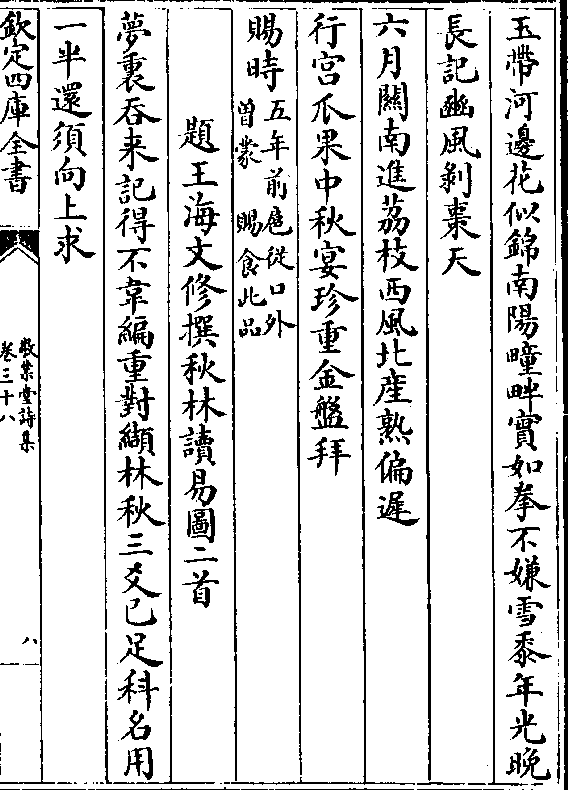 玉帶河邊花似錦南陽疃畔實如拳不嫌雪黍年光晚
長記豳風剝棗天
六月關南進荔枝西風北産熟偏遲
行宮爪果中秋宴珍重金盤拜
賜時五年前扈從口外
曽蒙 賜食此品
題王海文修撰秋林讀易圖二首
夢裏吞来記得不韋編重對纈林秋三爻已足科名用
一半還須向上求
欽定四庫全書
敬業堂詩集
卷三十八
八